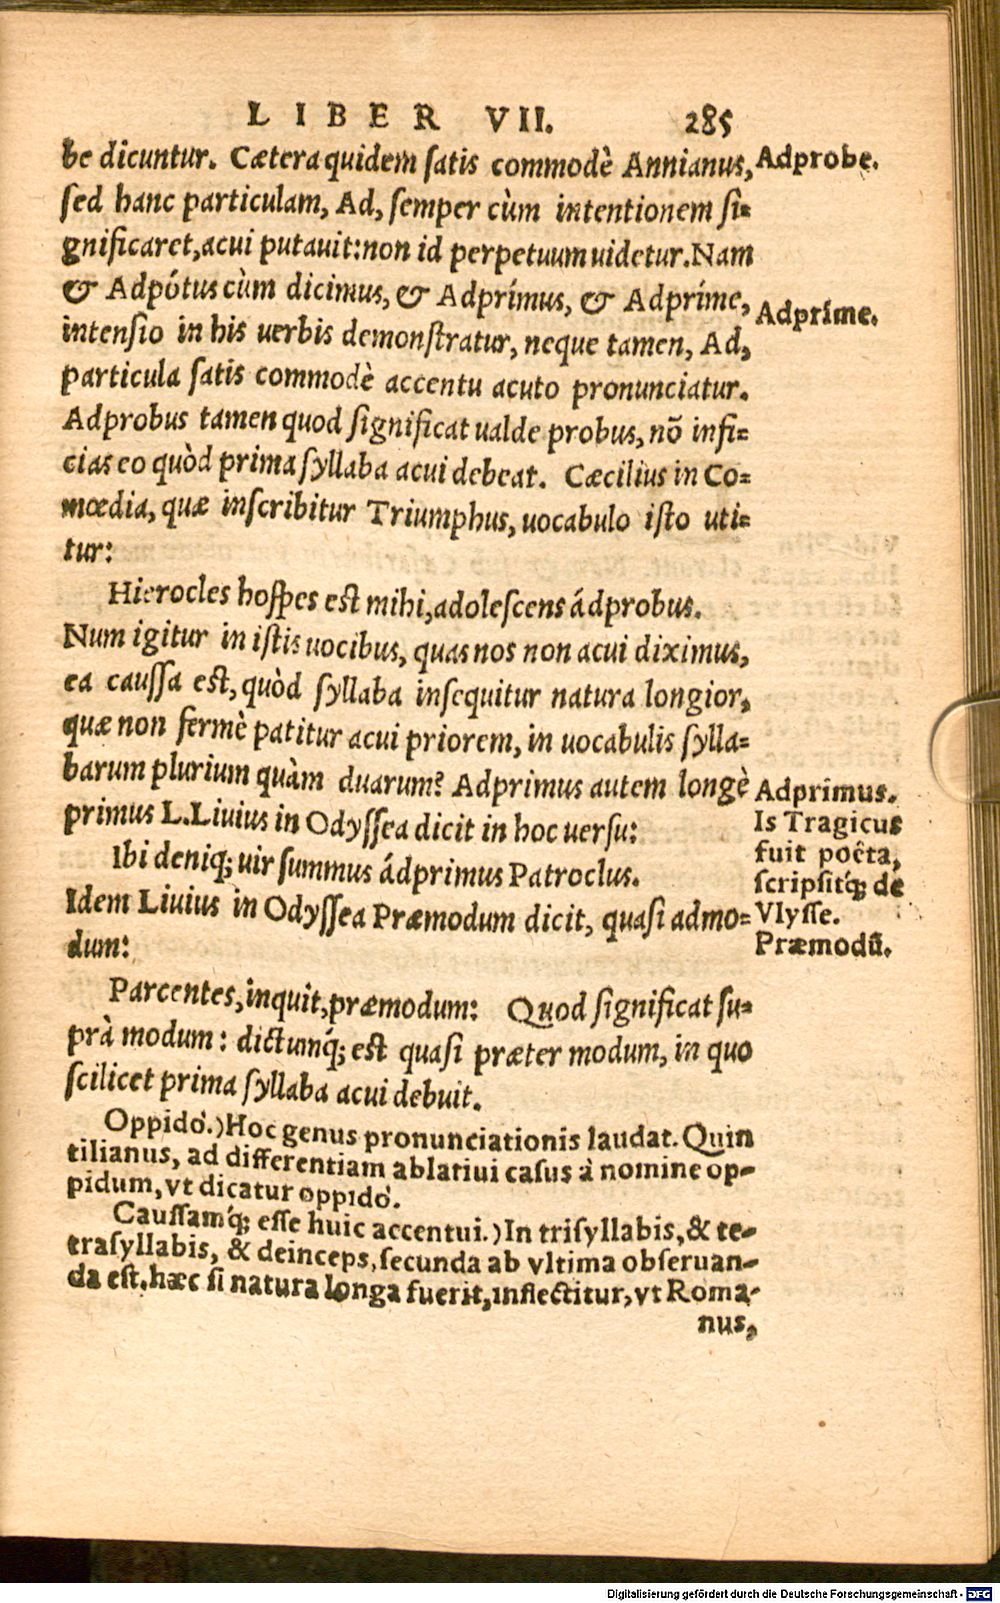 LIBER VII. 285
be dicuntur. Cætera quidem ſatis commodè Annianus,
Adprobe.
ſed hanc particulam, Ad, ſemper cùm intentionem ſi-
gnificaret, acui putauit: non id perpetuum uidetur. Nam
& Adpótus cùm dicimus, & Adprímus, & Adpríme,
Adpríme.
intenſio in his uerbis demonſtratur, neque tamen, Ad,
particula ſatis commodè accentu acuto pronunciatur.
Adprobus tamen quod ſignificat ualde probus, nõ infi-
cias eo quòd prima ſyllaba acui debeat. Cæcilius in Co-
mœdia, quæ inſcribitur Triumphus, uocabulo iſto uti-
tur:
Hierocles hoſpes eſt mihi, adoleſcens ádprobus.
Num igitur in iſtis uocibus, quas nos non acui diximus,
ea cauſſa eſt, quòd ſyllaba inſequitur natura longior,
quæ non fermè patitur acui priorem, in uocabulis ſylla-
barum plurium quàm duarum? Adprimus autem longè
Adprimus.
primus L. Liuius in Odyſſea dicit in hoc uerſu:
Is Tragicus
fuit poêta,
ſcripſitq́; de
Vlyſſe.
Ibi deniq; uir ſummus ádprimus Patroclus.
Idem Liuius in Odyſſea Præmodum dicit, quaſi admo-
dum:
Præmodũ.
Parcentes, inquit, præmodum: Quod ſignificat ſu-
prà modum: dictumq́; eſt quaſi præter modum, in quo
ſcilicet prima ſyllaba acui debuit.
Oppidò.) Hoc genus pronunciationis laudat. Quin
tilianus, ad differentiam ablatiui caſus à nomine op-
pidum, vt dicatur oppidò.
Cauſſamq́; eſſe huic accentui.) In triſyllabis, & te-
traſyllabis, & deinceps, ſecunda ab vltima obſeruan-
da eſt, hæc ſi natura longa fuerit, inflectitur, vt Roma-
nus,
Digitalisierung gefördert durch die Deutsche Forschungsgemeinschaft - DFG